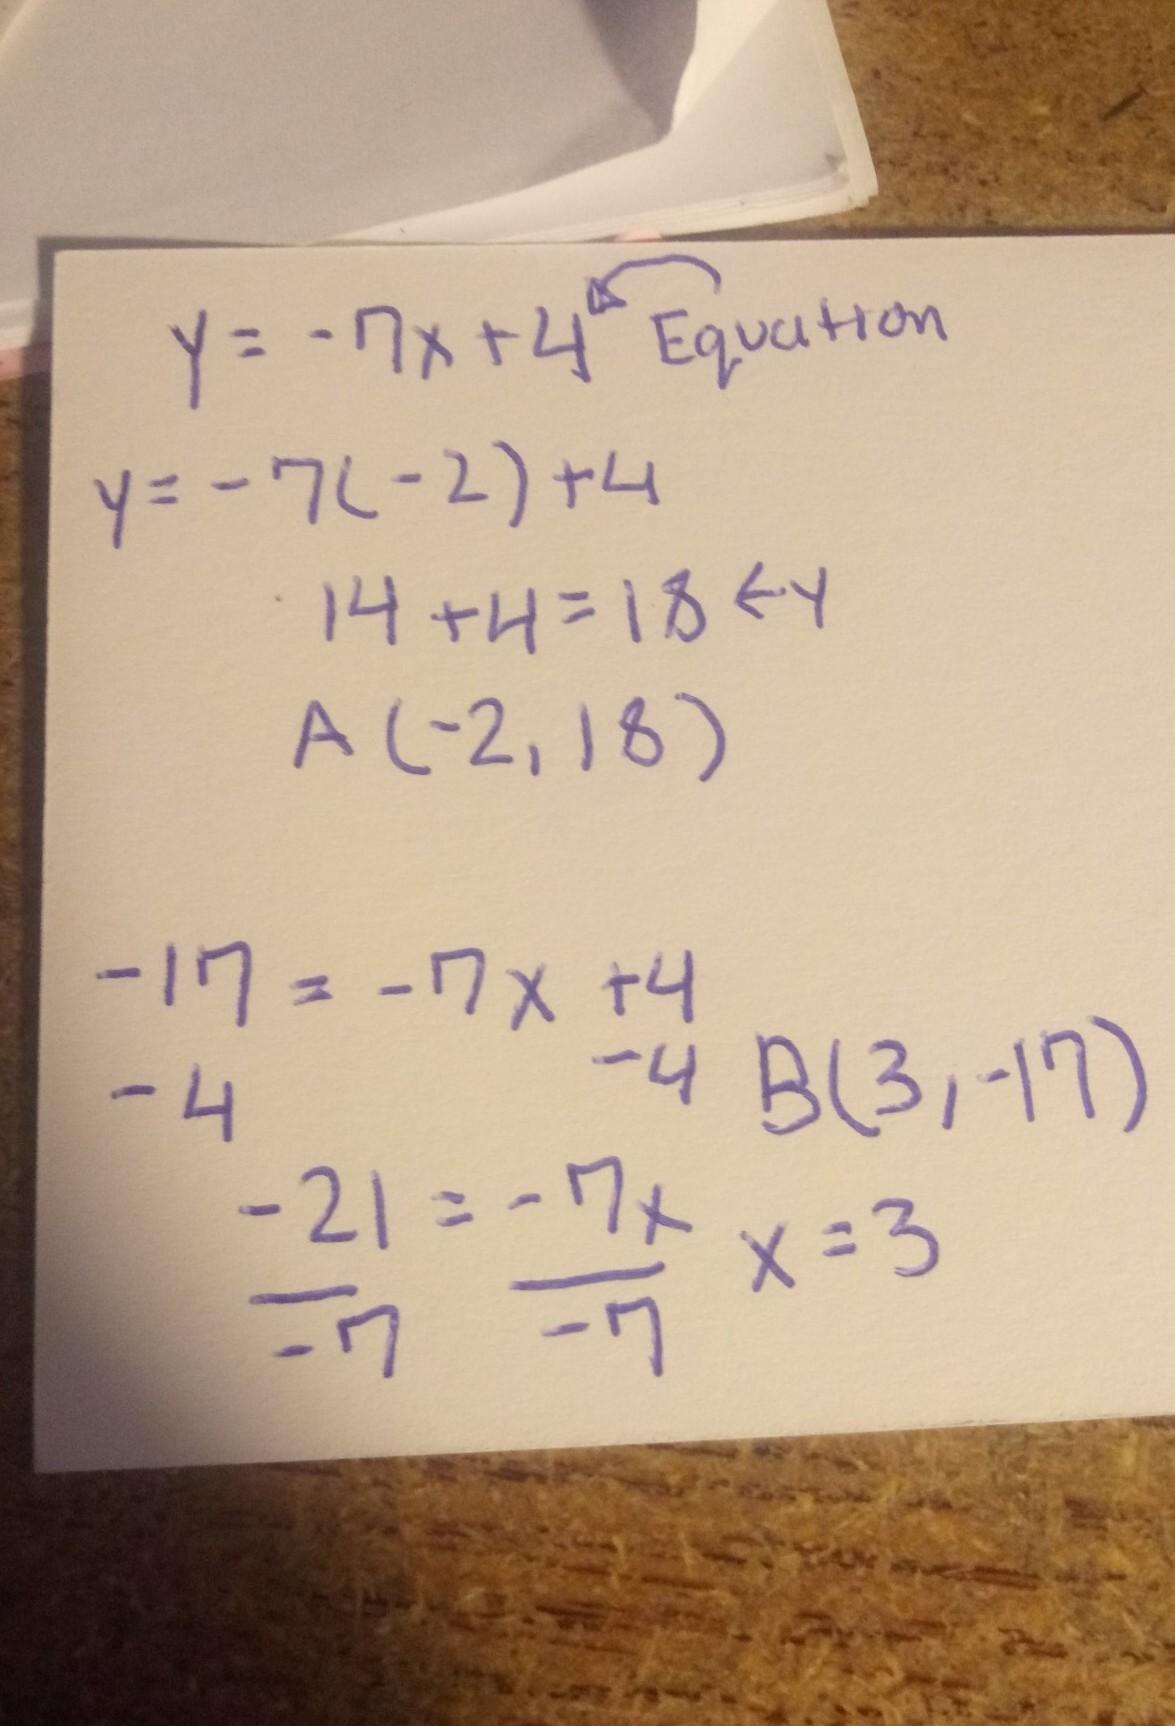 y = -7x + 4 Equation
y = -7(-2) + 4
14 + 4 = 18 ← y
A (-2, 18)
-17 = -7x + 4
-4 -4 B(3, -17)
-21 = -7x x = 3
-7 -7